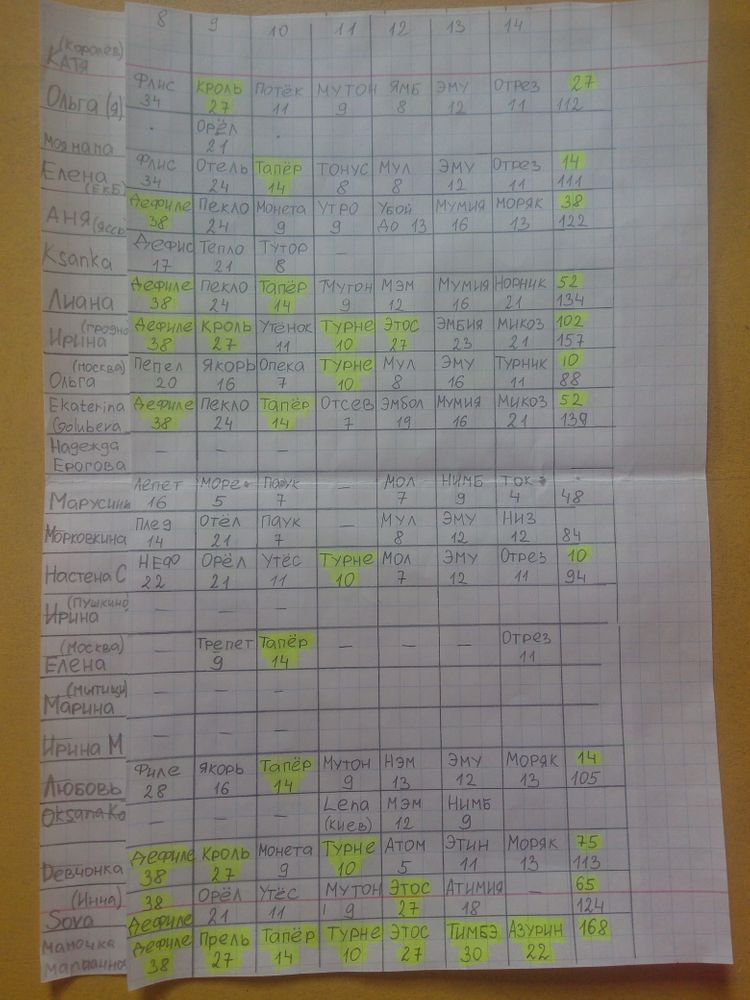 8 9 10 11 12 13 14
(Королёв)
КАТЯ
Флис КРОЛЬ Потёк МУТОН ЯМБ ЭМУ Отрез 27
Ольга (Я) 34 27 11 9 8 12 11 112
. ОРЁЛ .
моя мапа 21
Флис Отель Тапёр ТОНУС МУЛ ЭМУ Отрез 14
Елена 34 24 14 8 8 12 11 111
(ЕКБ)
Дефиле Пекло Монета УТРО Убой МУМИЯ МОРЯК 38
АНЯ (Яссы) 38 24 9 9 до 13 16 13 122
Дефис Тепло ТУТОР —
Ksanka 17 21 8
Дефиле Пекло Тапёр Мутон МЭМ МУМИЯ НОРНИК 52
Лиана 38 24 14 9 12 16 21 134
(гродно) Дефиле КРОЛЬ Утёнок ТУРНЕ ЭТОС ЭМБИЯ МИКОЗ 102
Ирина 38 27 11 10 27 23 21 157
(москва) Пепел ЯКОРЬ Опека ТУРНЕ МУЛ ЭМУ ТУРНИК 10
Ольга 20 16 7 10 8 16 11 88
Ekaterina Дефиле Пекло Тапёр Отсев ЭМБОЛ МУМИЯ МИКОЗ 52
Golubeva 38 24 14 7 19 16 21 139
Надежда — — —
Ерогова
Лепет МОРЕ ПАУК — МОЛ НИМБ ТОК
Марусины 16 5 7 7 9 4 48
Плед Отёл ПАУК — МУЛ ЭМУ НИЗ
Морковкина 14 21 7 8 12 12 84
НЕФ ОРЁЛ УТЁС ТУРНЕ МОЛ ЭМУ Отрез 10
Настена С 22 21 11 10 7 12 11 94
(Пушкино) — — —
Ирина
(москва) — Трепет Тапёр — — — Отрез
Елена 9 14 11
(митищи) — — —
Марина
— — —
Ирина М
Филе ЯКОРЬ Тапёр МУТОН НЭМ ЭМУ МОРЯК 14
Любовь 28 16 14 9 13 12 13 105
Oksana Ko — — — Lena МЭМ НИМБ
(Киев) 12 9
Дефиле КРОЛЬ Монета ТУРНЕ АТОМ ЭТИН МОРЯК 75
Девчонка 38 27 9 10 5 11 13 113
(Инна) 38 ОРЁЛ УТЁС МУТОН ЭТОС АТИМИЯ — 65
Sova Дефиле 21 11 9 27 18 124
мамочка Дефиле Прель Тапёр ТУРНЕ ЭТОС ТИМБЭ АЗУРИН 168
38 27 14 10 27 30 22